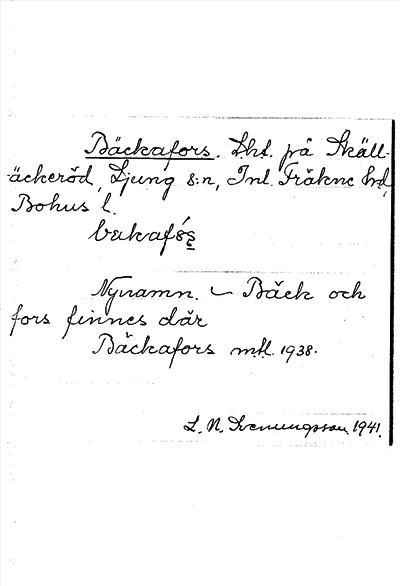 Bäckafors. Lht. på Skäll-
äckeröd, Ljung s:n, Inl. Fräkne hd,
Bohus l.
Nynamn. Bäck och
fors finnes där
Bäckafors mtl. 1938.
L. N. Svenungsson. 1941.